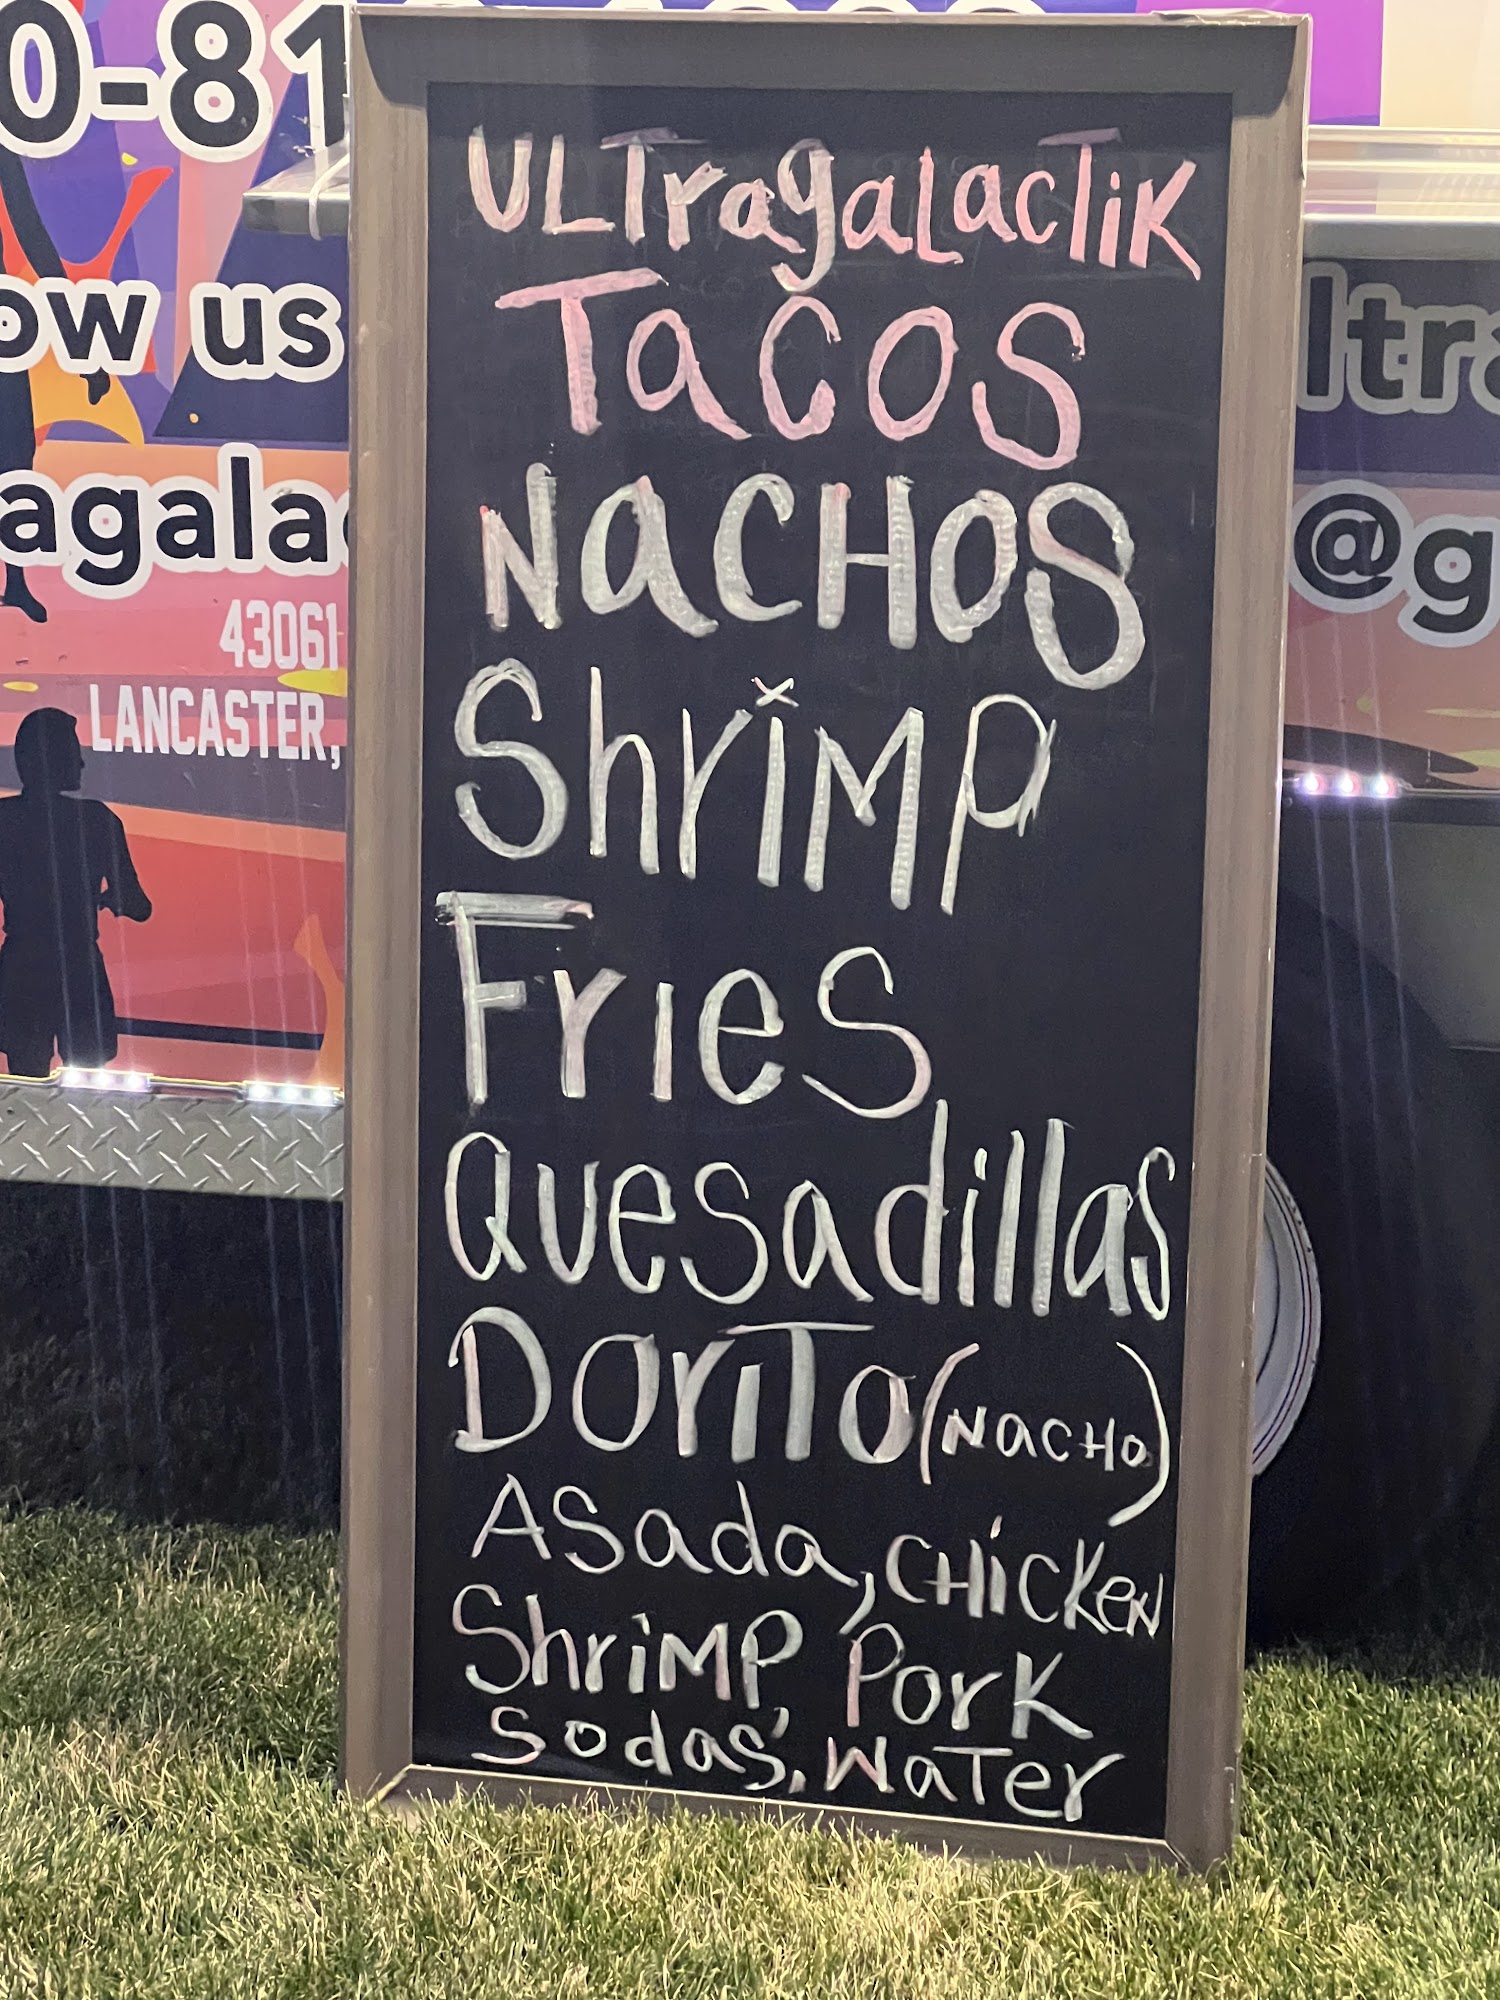 0-81
ow us
agala
43061
LANCASTER,
ULTragaLacTiK
Tacos
NacHos
ShriMP
Fries
Quesadillas
DoriTo (NacHo)
Asada, CHicKeN
ShriMP, Pork
Sodas', WaTer
ltra
@g